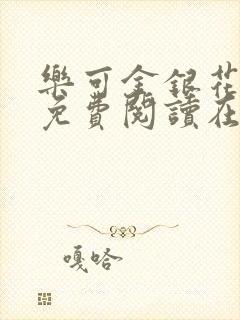 樂可金銀花
免費閱讀在
嘎哈